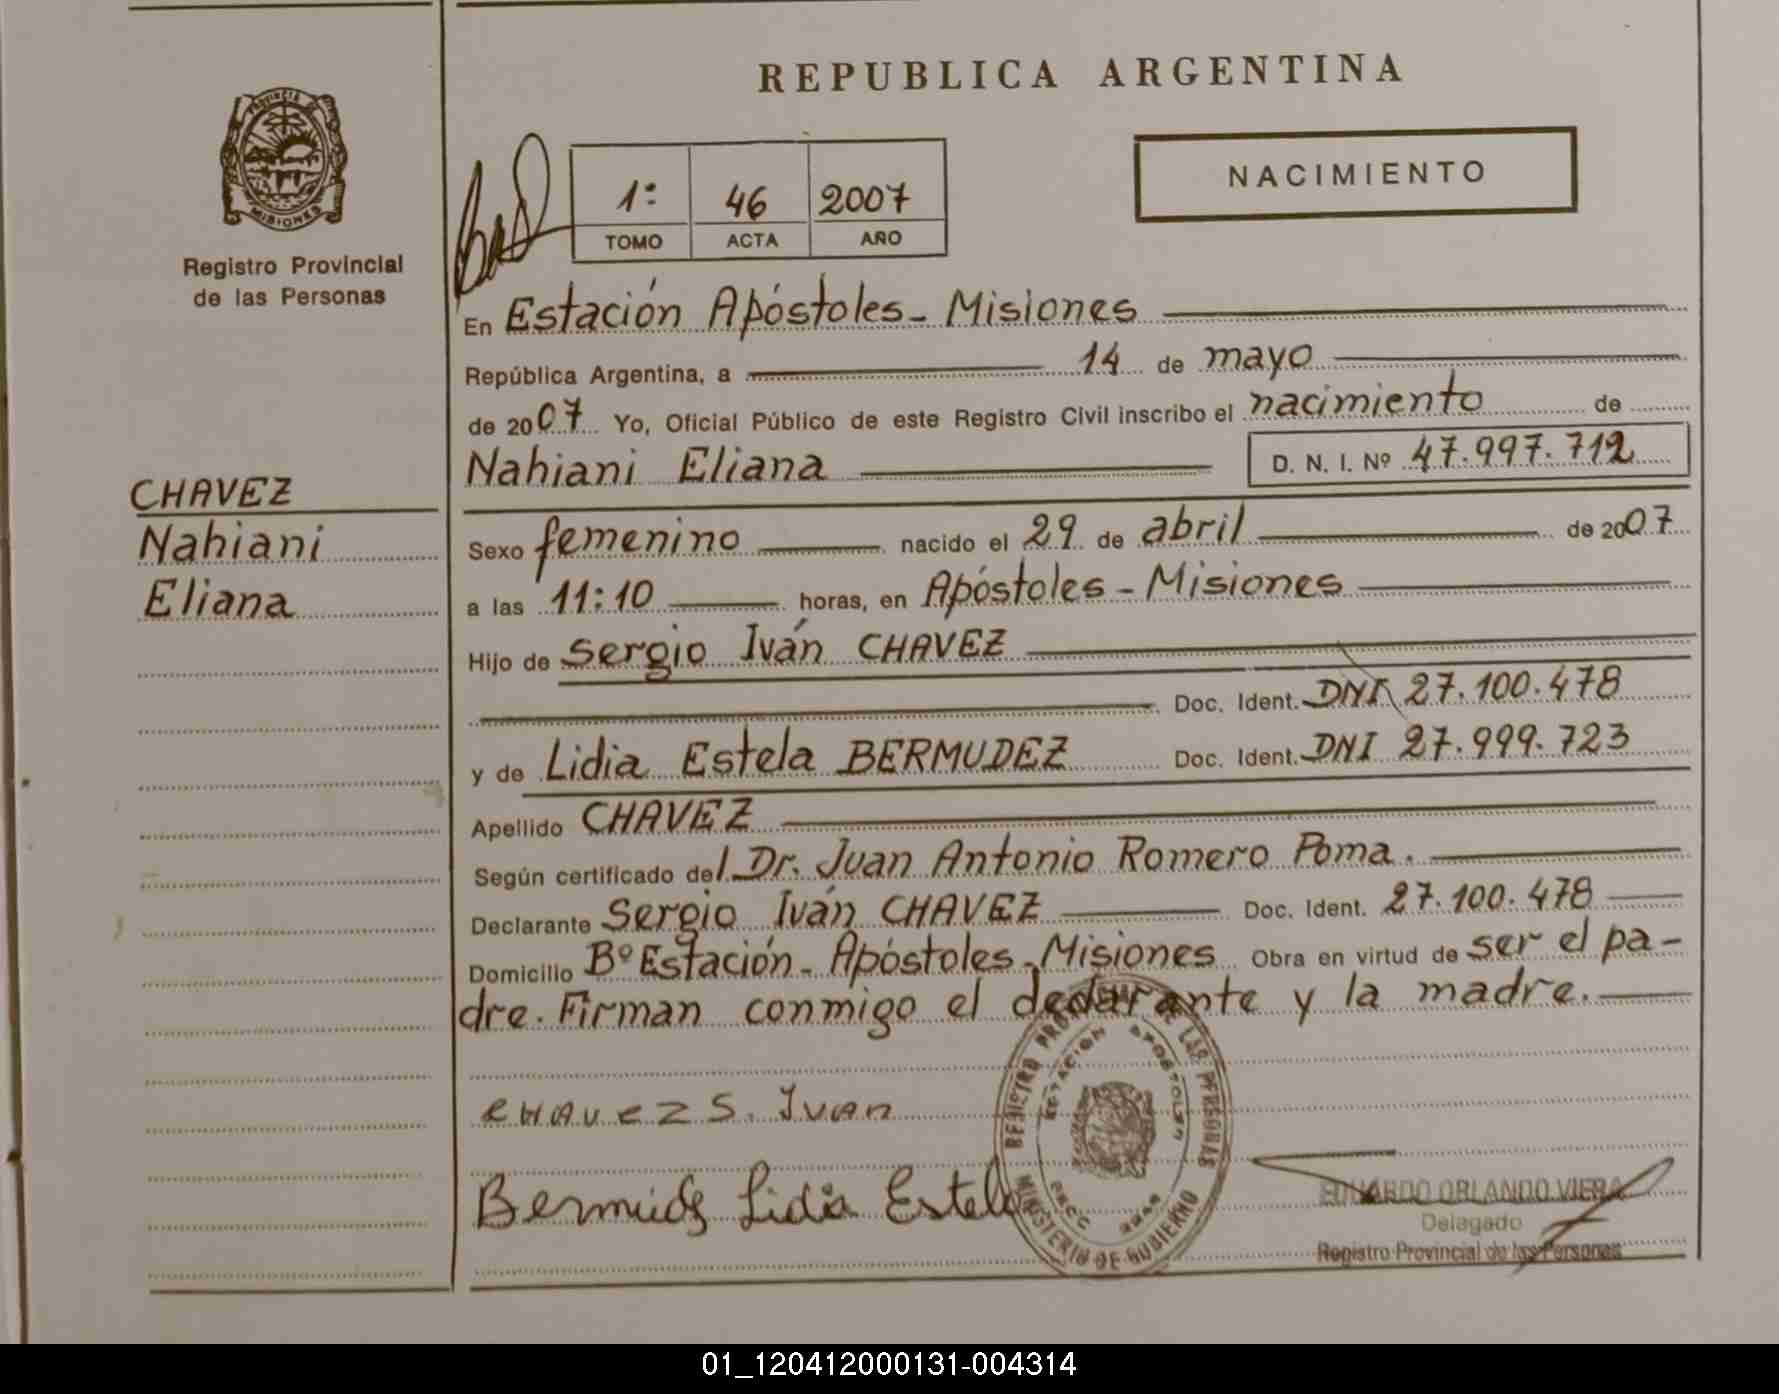 REPUBLICA ARGENTINA
PROVINCIA DE
MISIONES
Registro Provincial
de las Personas
NACIMIENTO
1º 46 2007
TOMO ACTA AÑO
En Estación Apóstoles - Misiones
República Argentina, a 14 de mayo
de 2007 Yo, Oficial Público de este Registro Civil inscribo el nacimiento de
Nahiani Eliana D. N. I. Nº 47.997.712
CHAVEZ
Nahiani
Eliana
Sexo femenino nacido el 29 de abril de 2007
a las 11:10 horas, en Apóstoles - Misiones
Hijo de Sergio Iván CHAVEZ
Doc. Ident. DNI 27.100.478
y de Lidia Estela BERMUDEZ Doc. Ident. DNI 27.999.723
Apellido CHAVEZ
Según certificado del Dr. Juan Antonio Romero Poma.
Declarante Sergio Iván CHAVEZ Doc. Ident. 27.100.478
Domicilio Bº Estación - Apóstoles - Misiones Obra en virtud de ser el pa-
dre. Firman conmigo el declarante y la madre.
CHAVEZ S. Ivan
Bermudez Lidia Estela
REGISTRO PROVINCIAL DE LAS PERSONAS
ESTACION APOSTOLES
MINISTERIO DE GOBIERNO
EDUARDO ORLANDO VIERA
Delegado
Registro Provincial de las Personas
01_120412000131-004314